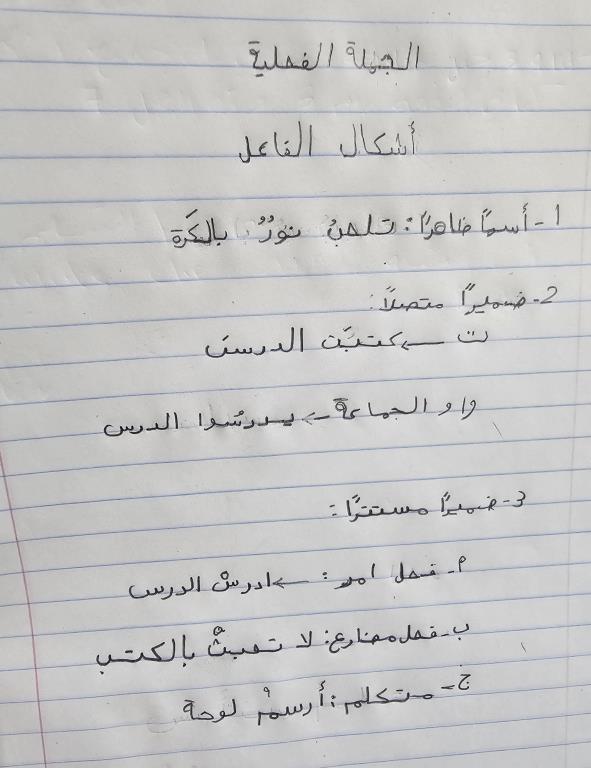 الجملة الفعلية
أشكال الفاعل
1- أسمًا ظاهرًا: تلعبُ نورُ بالكَرة
2- ضميرًا متصلاً:
ت ← كتبَت الدرسَ
واو الجماعة ← يدرسُوا الدرس
3- ضميرًا مستترًا:
أ- فعل امر: ← ادرسْ الدرس
ب- فعل مضارع: لا تعبثْ بالكتب
ج- متكلم: أرسمْ لوحة